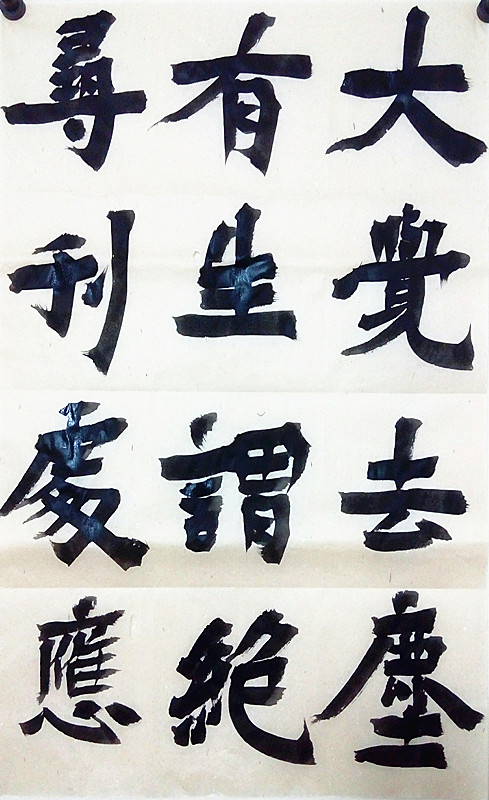 大覺去塵
有生謂絕
尋刊處應